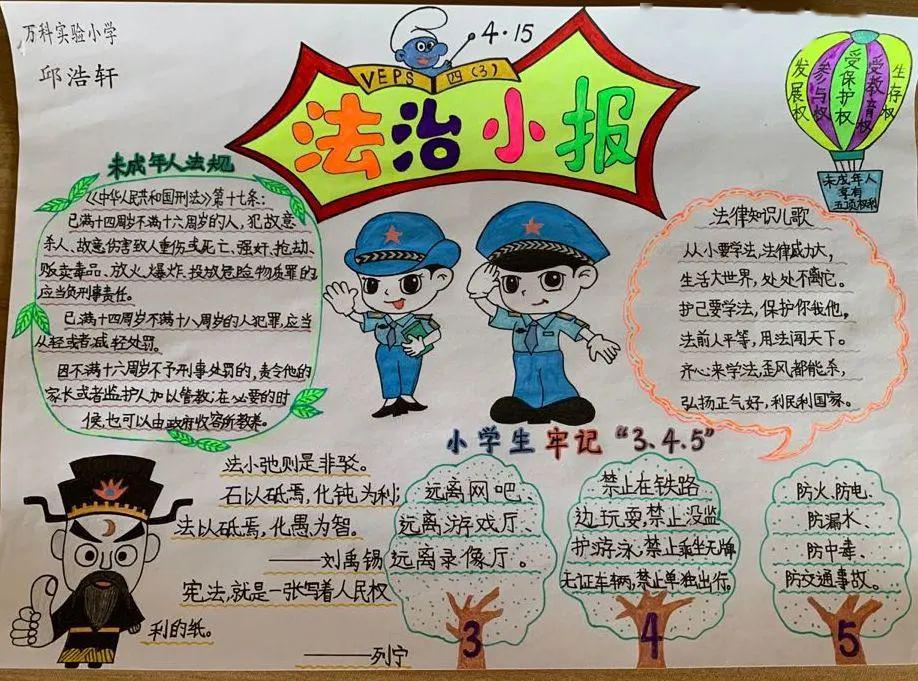 万科实验小学
邱浩轩
4·15
VEPS 四(3)
法治小报
生存权
受教育权
受保护权
参与权
发展权
未成年人
享有
五项权利
未成年人法规
《《中华人民共和国刑法》第十七条:
已满十四周岁不满十六周岁的人,犯故意
杀人、故意伤害致人重伤或死亡、强奸、抢劫、
贩卖毒品、放火、爆炸、投放危险物质罪的
应当负刑事责任。
已满十四周岁不满十八周岁的人犯罪,应当
从轻或者减轻处罚。
因不满十六周岁不予刑事处罚的,责令他的
家长或者监护人加以管教;在必要的时
候,也可以由政府收容所教养。
法律知识儿歌
从小要学法,法律威力大,
生活大世界,处处不离它。
护己要学法,保护你我他,
法前人平等,用法闯天下。
齐心来学法,歪风都能系,
弘扬正气好,利民利国家。
小学生牢记“3、4、5”
法小弛则是非驳。
石以砥焉,化钝为利;
法以砥焉,化愚为智。
——刘禹锡
宪法,就是一张写着人民权
利的纸。
——列宁
远离网吧、
远离游戏厅、
远离录像厅。
3
禁止在铁路
边玩耍,禁止没监
护游泳,禁止乘坐无牌
无证车辆,禁止单独出行。
4
防火、防电、
防漏水、
防中毒、
防交通事故。
5